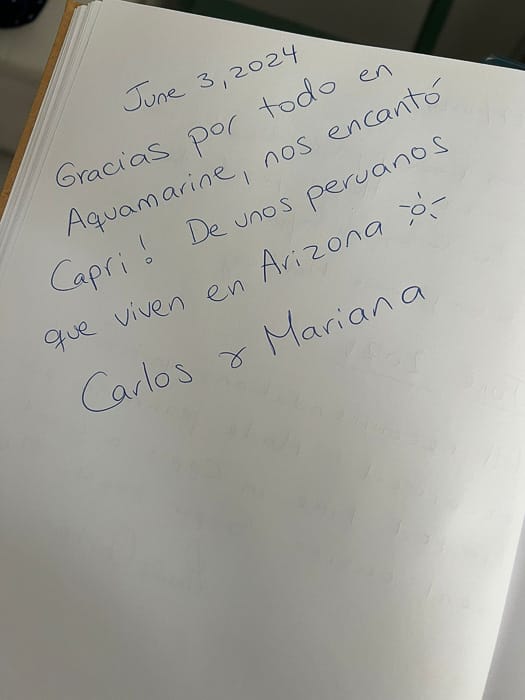 June 3, 2024
Gracias por todo en
Aquamarine, nos encantó
Capri! De unos peruanos
que viven en Arizona
Carlos y Mariana